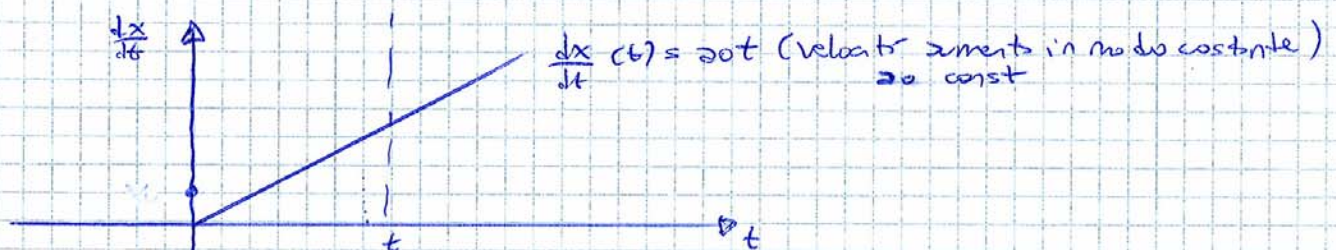 dx/dt
dx/dt (t) = a0t (velocità aumenta in modo costante)
a0 const
t
t